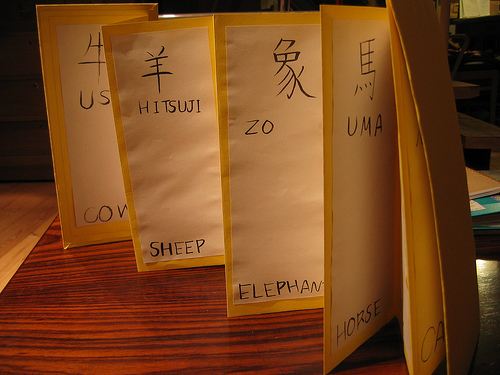 牛
US
COW
羊
HITSUJI
SHEEP
象
ZO
ELEPHAN
馬
UMA
HORSE
CA